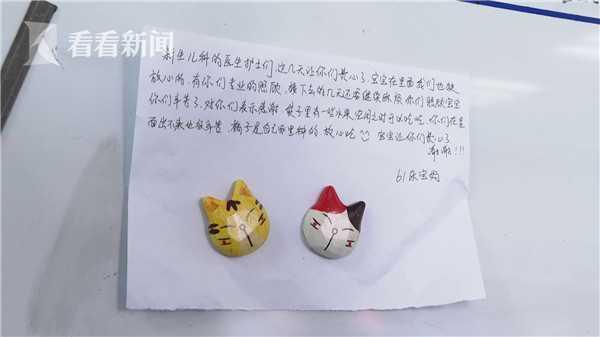 看看新闻
新生儿科的医生护士们,这几天让你们费心了,宝宝在里面我们也挺
放心的,有你们专业的照顾,接下去的几天还要继续麻烦你们照顾宝宝
你们辛苦了,对你们表示感谢 袋子里有一些水果,空闲之时可以吃吃,你们在里
面出不来也挺辛苦,橘子是自己家里种的 放心吃 宝宝让你们费心了
谢谢!!!
61床宝妈